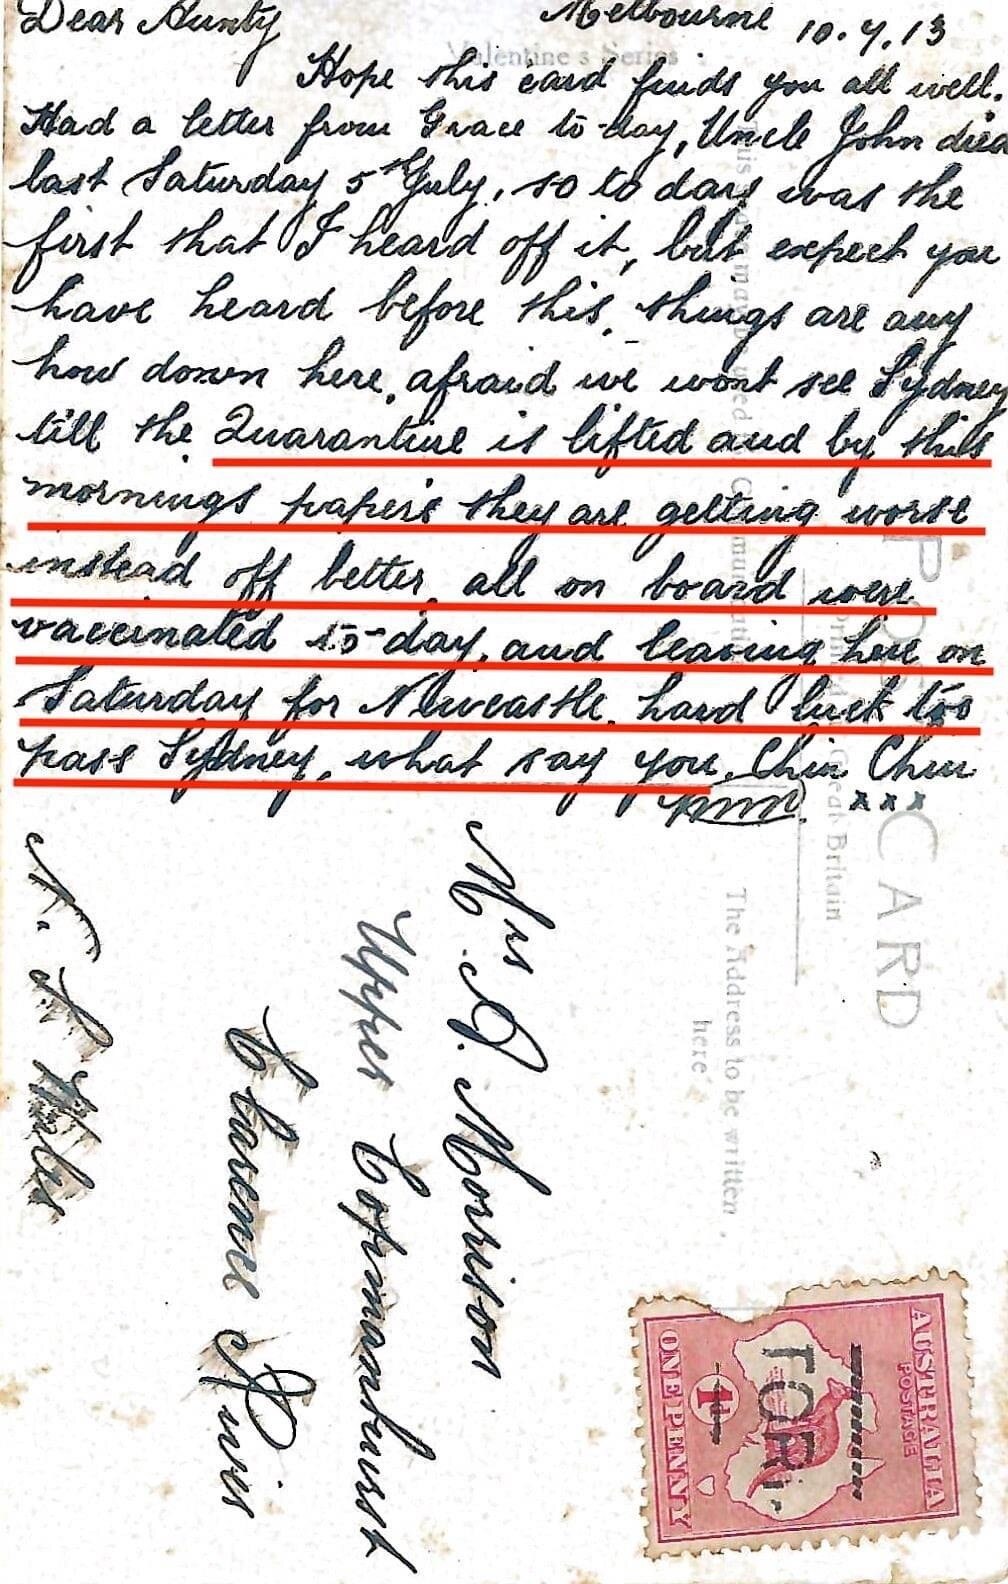 Dear Aunty
Melbourne 10.7.13
Hope this card finds you all well.
Had a letter from Grace to-day, Uncle John died
last Saturday 5th July, so to day was the
first that I heard off it, but expect you
have heard before this, things are any
how down here, afraid we wont see Sydney
till the Quarantine is lifted and by this
mornings papers they are getting worse
instead off better, all on board were
vaccinated to-day, and leaving here on
Saturday for Newcastle, hard luck too
pass Sydney, what say you, Chin Chin
xxx
Valentine's Series
POST CARD
Great Britain
The Address to be written
here
Mrs A. Morrison
Upper Copmanhurst
Clarence River
N. S. Wales
AUSTRALIA
POSTAGE
1d
ONE PENNY
TORI.